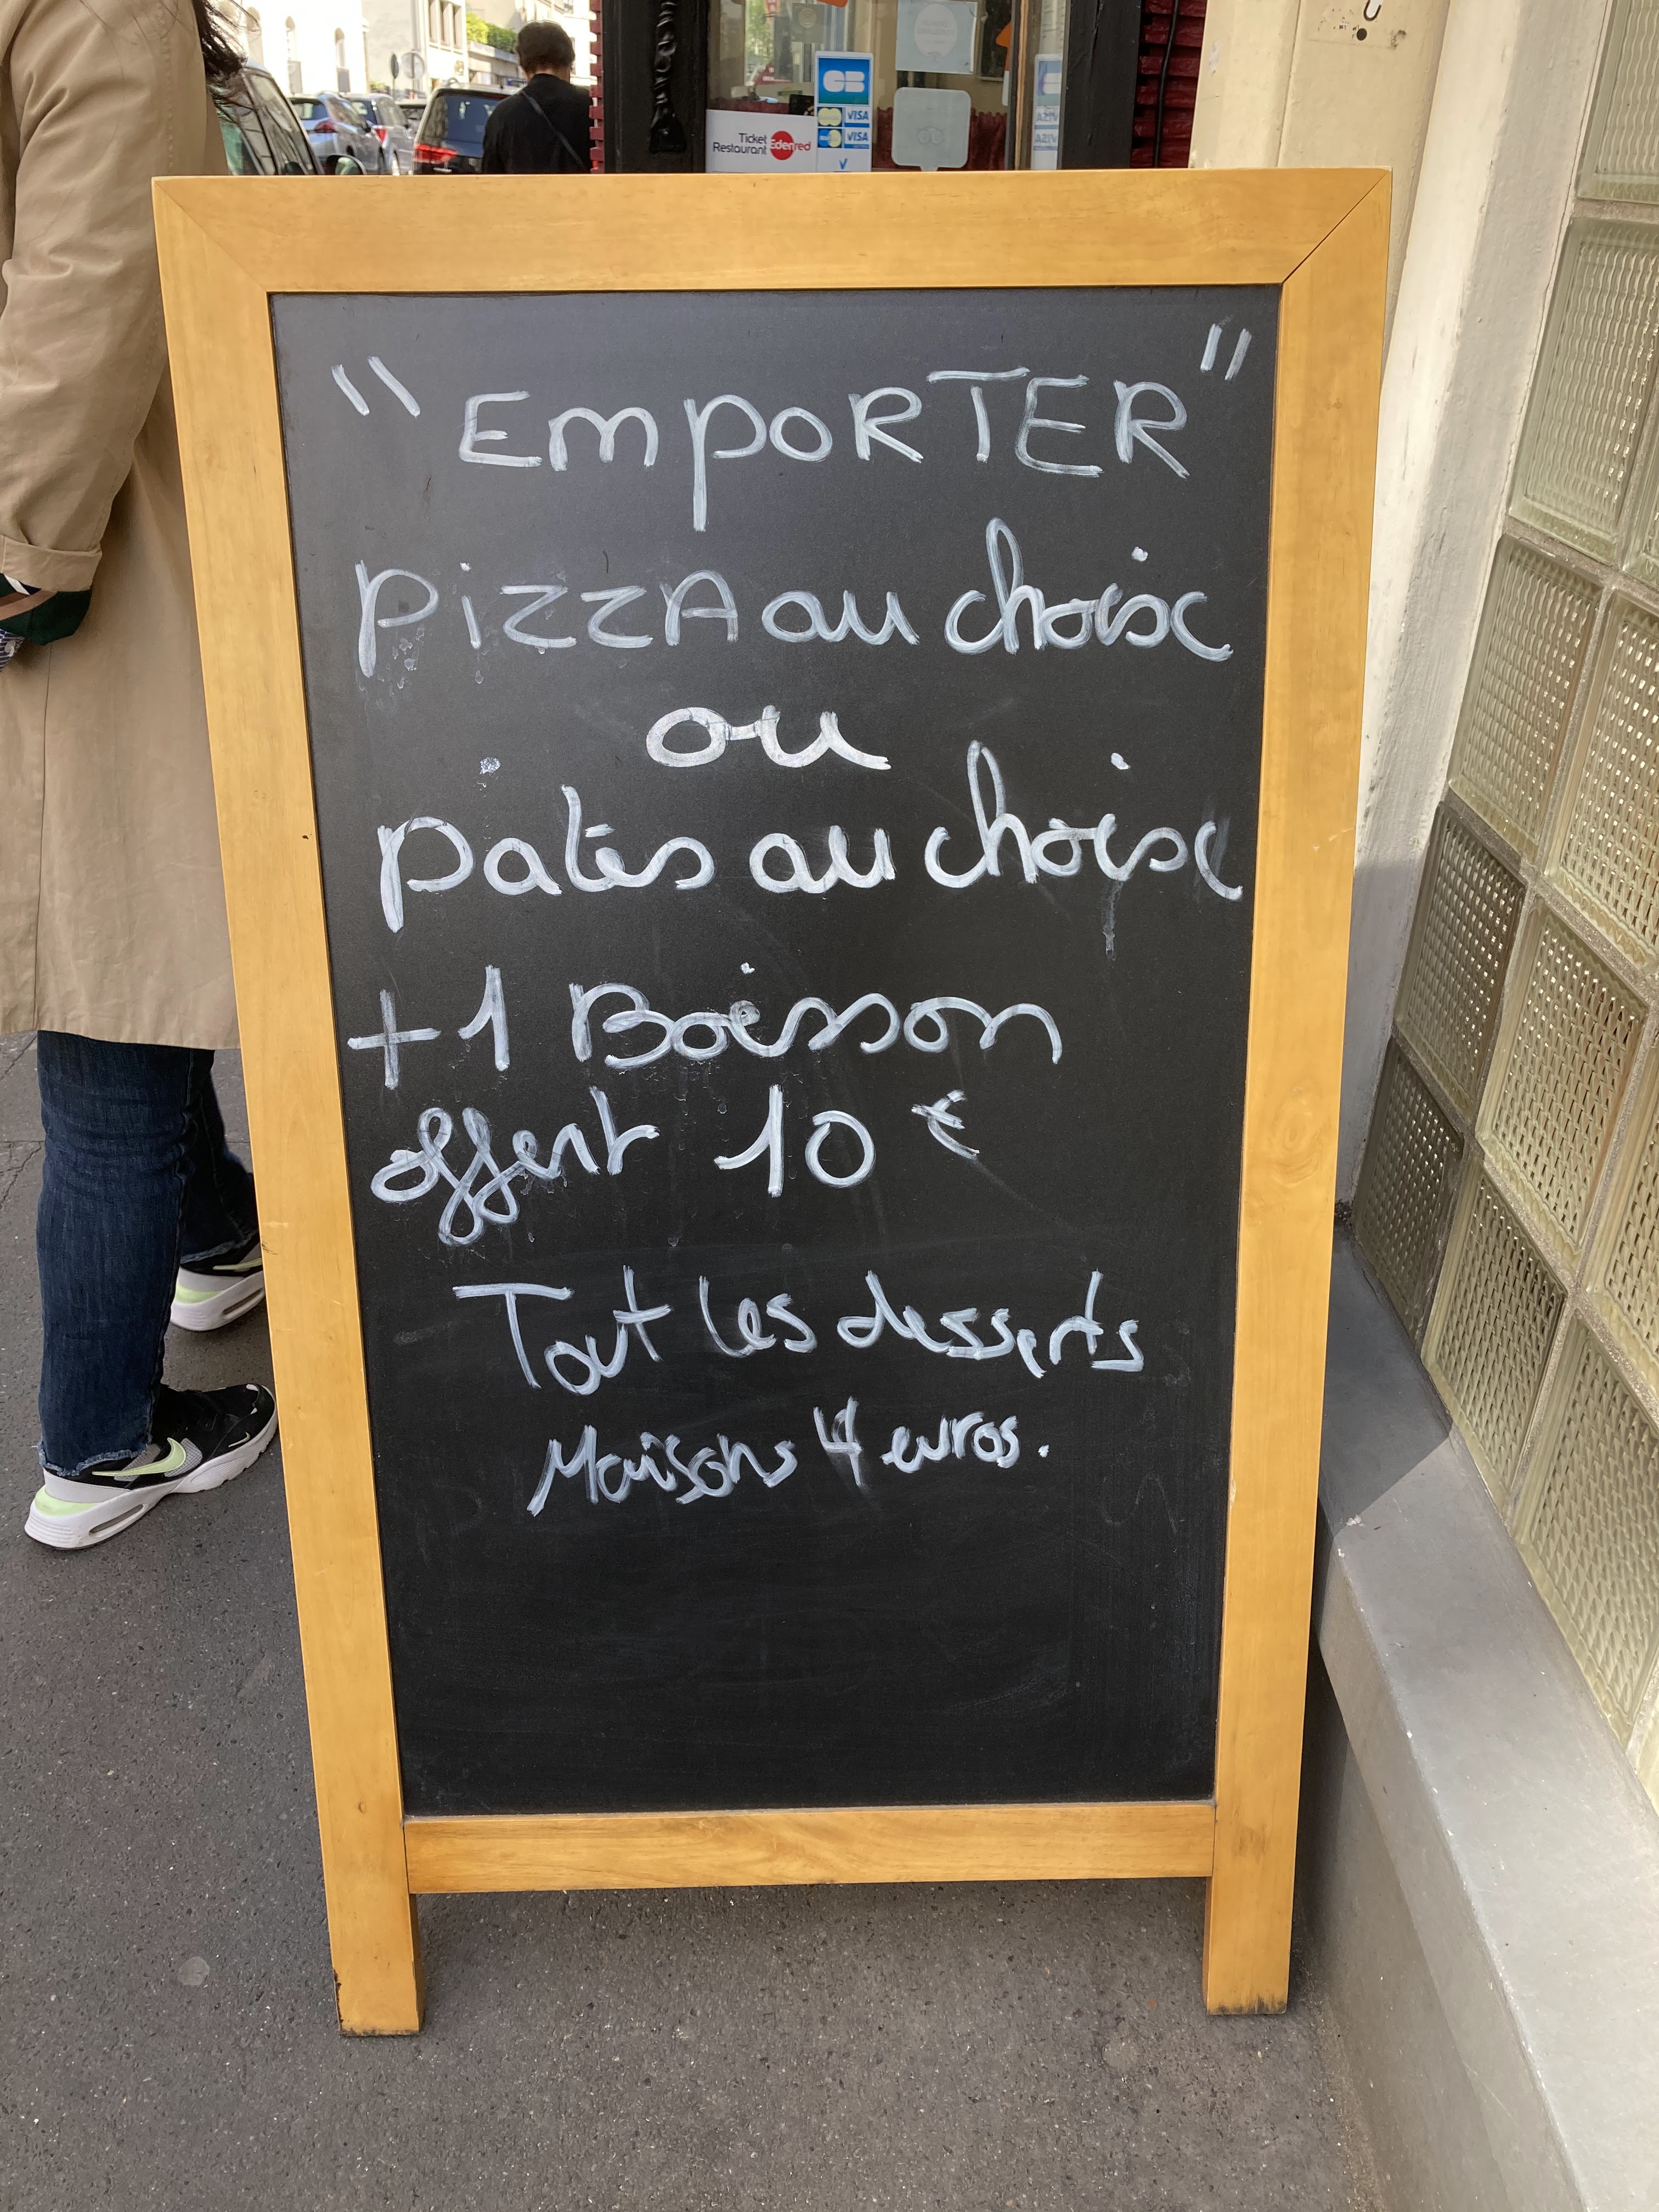 CB
VISA
VISA
V
Ticket
Restaurant Edenred
"EmpoRTER"
PizzA au choix
ou
Pates au choix
+1 Boisson
offert 10 €
Tout les desserts
Maisons 4 euros.